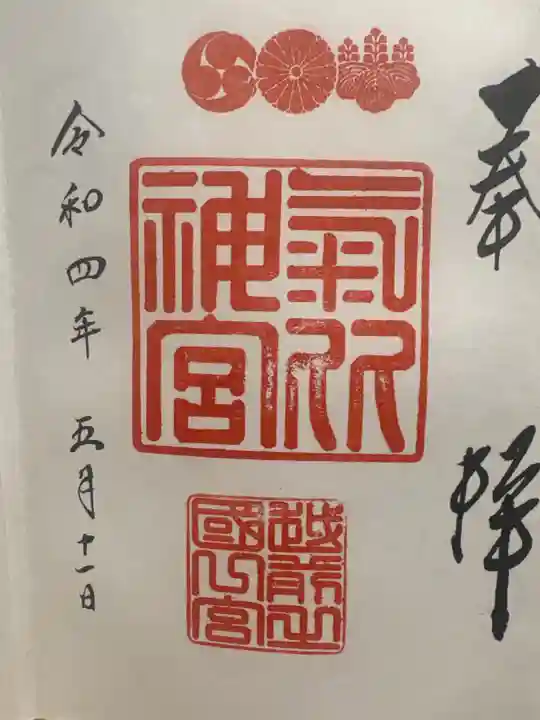 奉拝
氣比
神宮
越前一
國一宮
令和四年 五月十一日